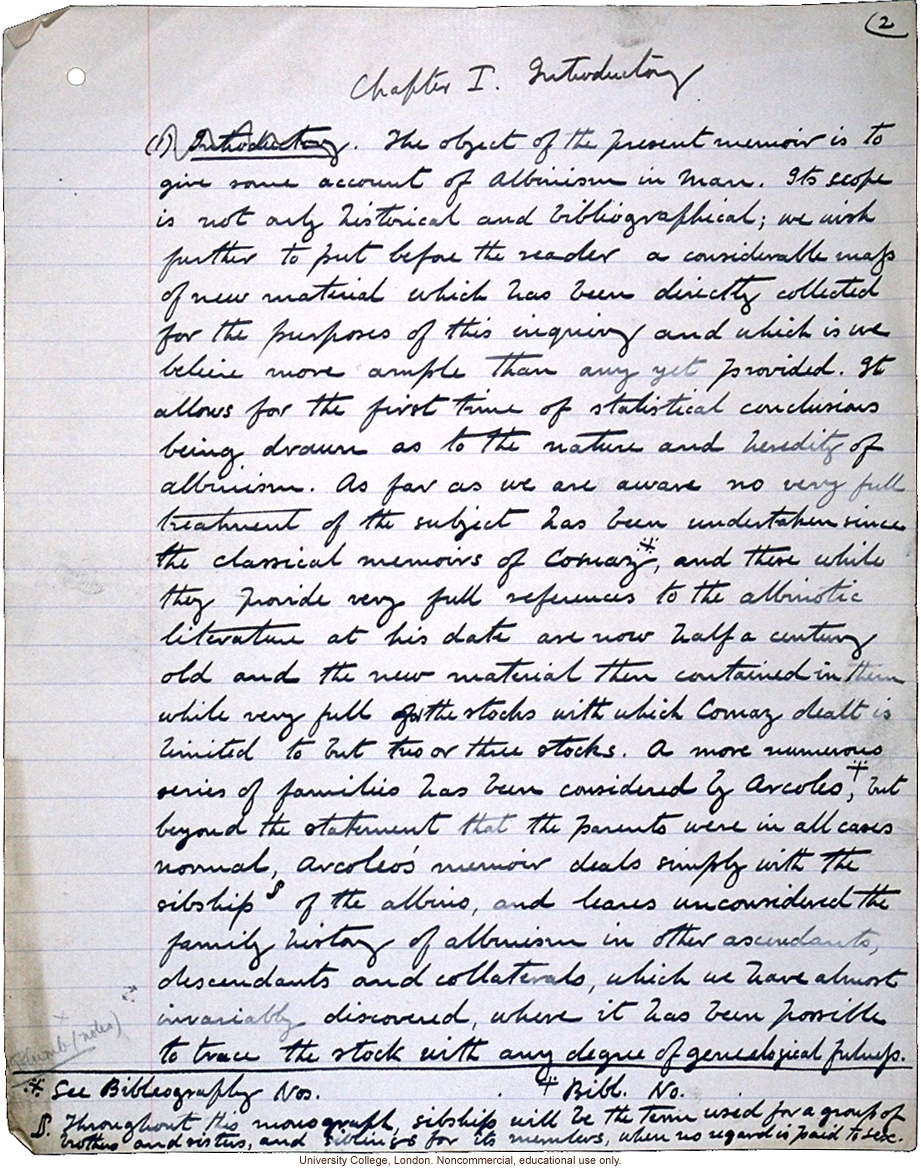 2
Chapter I. Introductory
(1) Introductory. The object of the present memoir is to
give some account of albinism in Man. Its scope
is not only historical and bibliographical; we wish
further to put before the reader a considerable mass
of new material which has been directly collected
for the purposes of this inquiry and which is we
believe more ample than any yet provided. It
allows for the first time of statistical conclusions
being drawn as to the nature and heredity of
albinism. As far as we are aware no very full
treatment of the subject has been undertaken since
the classical memoirs of Cornaz*, and these while
they provide very full references to the albinotic
literature at his date are now half a century
old and the new material then contained in them
while very full for the stocks with which Cornaz dealt is
limited to but two or three stocks. A more numerous
series of families has been considered by Arcoleo,‡ but
beyond the statement that the parents were in all cases
normal, Arcoleo's memoir deals simply with the
sibship§ of the albino, and leaves unconsidered the
family history of albinism in other ascendants,
descendants and collaterals, which we have almost
invariably discovered, where it has been possible
to trace the stock with any degree of genealogical fulness.
(notes)
* See Bibliography Nos. ‡ Bibl. No.
§. Throughout this monograph, sibship will be the term used for a group of
brothers and sisters, and siblings for its members, when no regard is paid to sex.
University College, London. Noncommercial, educational use only.